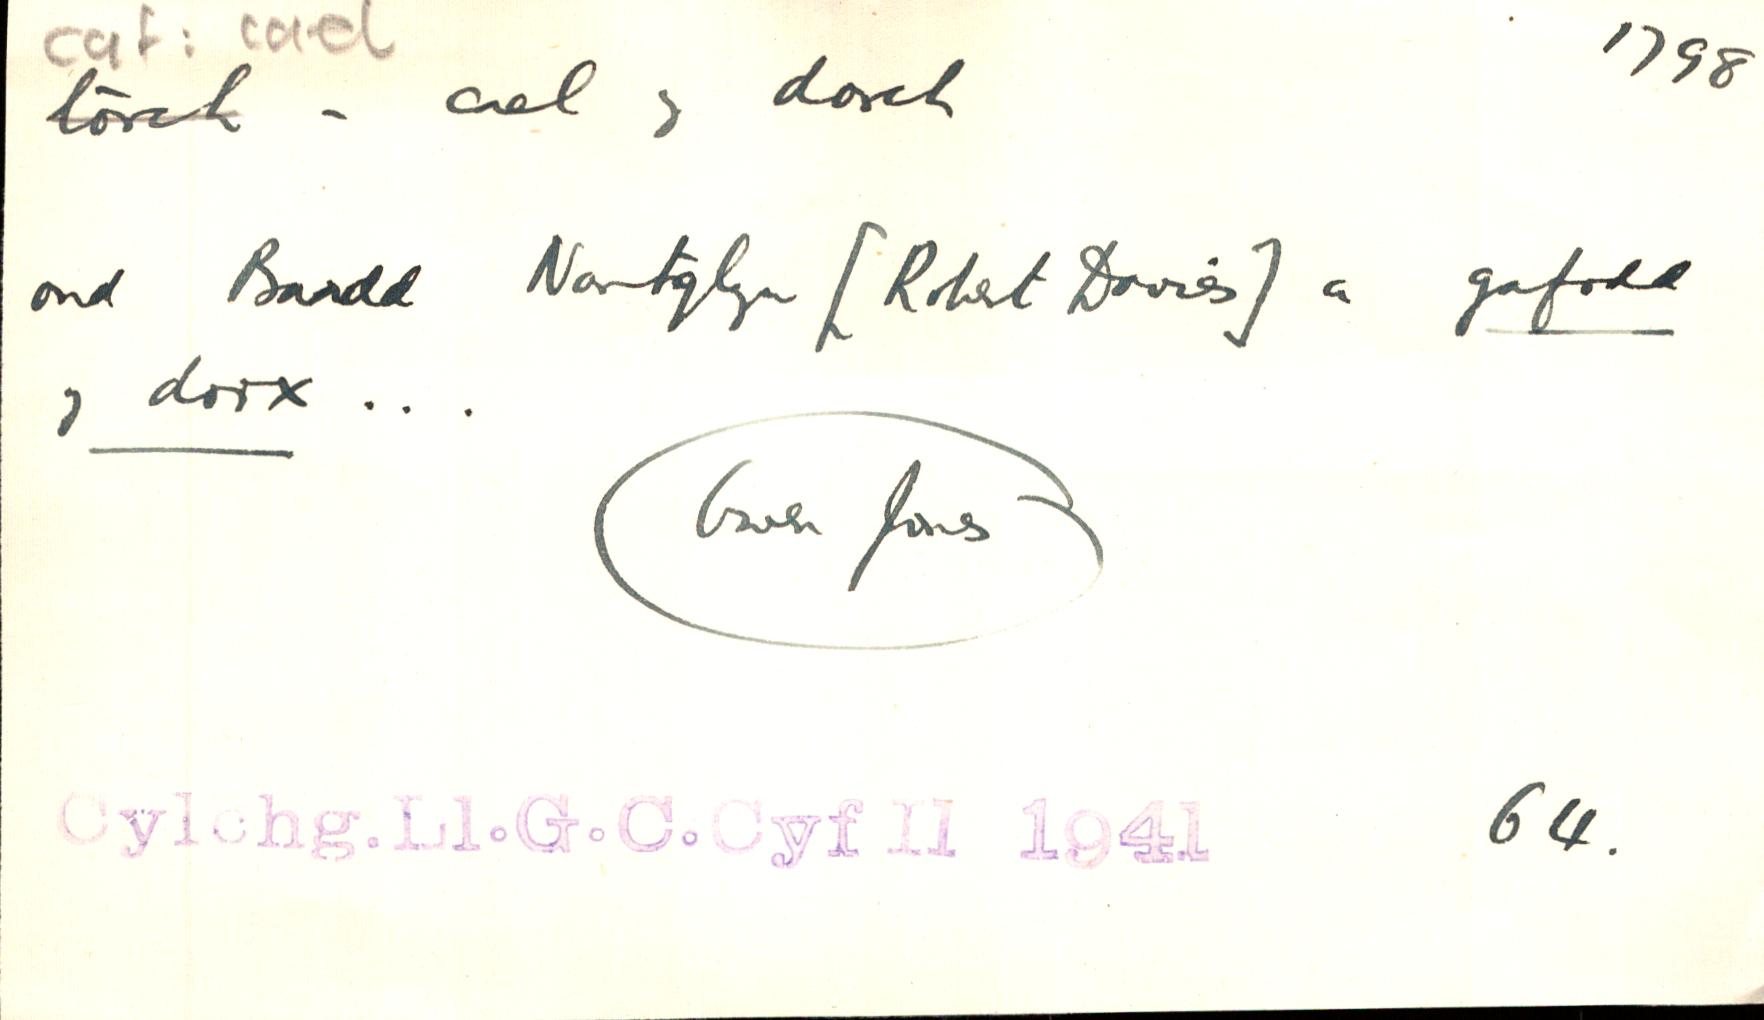 caf: cael
torch - cael y dorch 1798
ond Bardd Nantglyn [Robert Davies] a gafodd
y dorx ...
Owen Jones
Cylchg.Ll.G.C.Cyf II 1941 64.